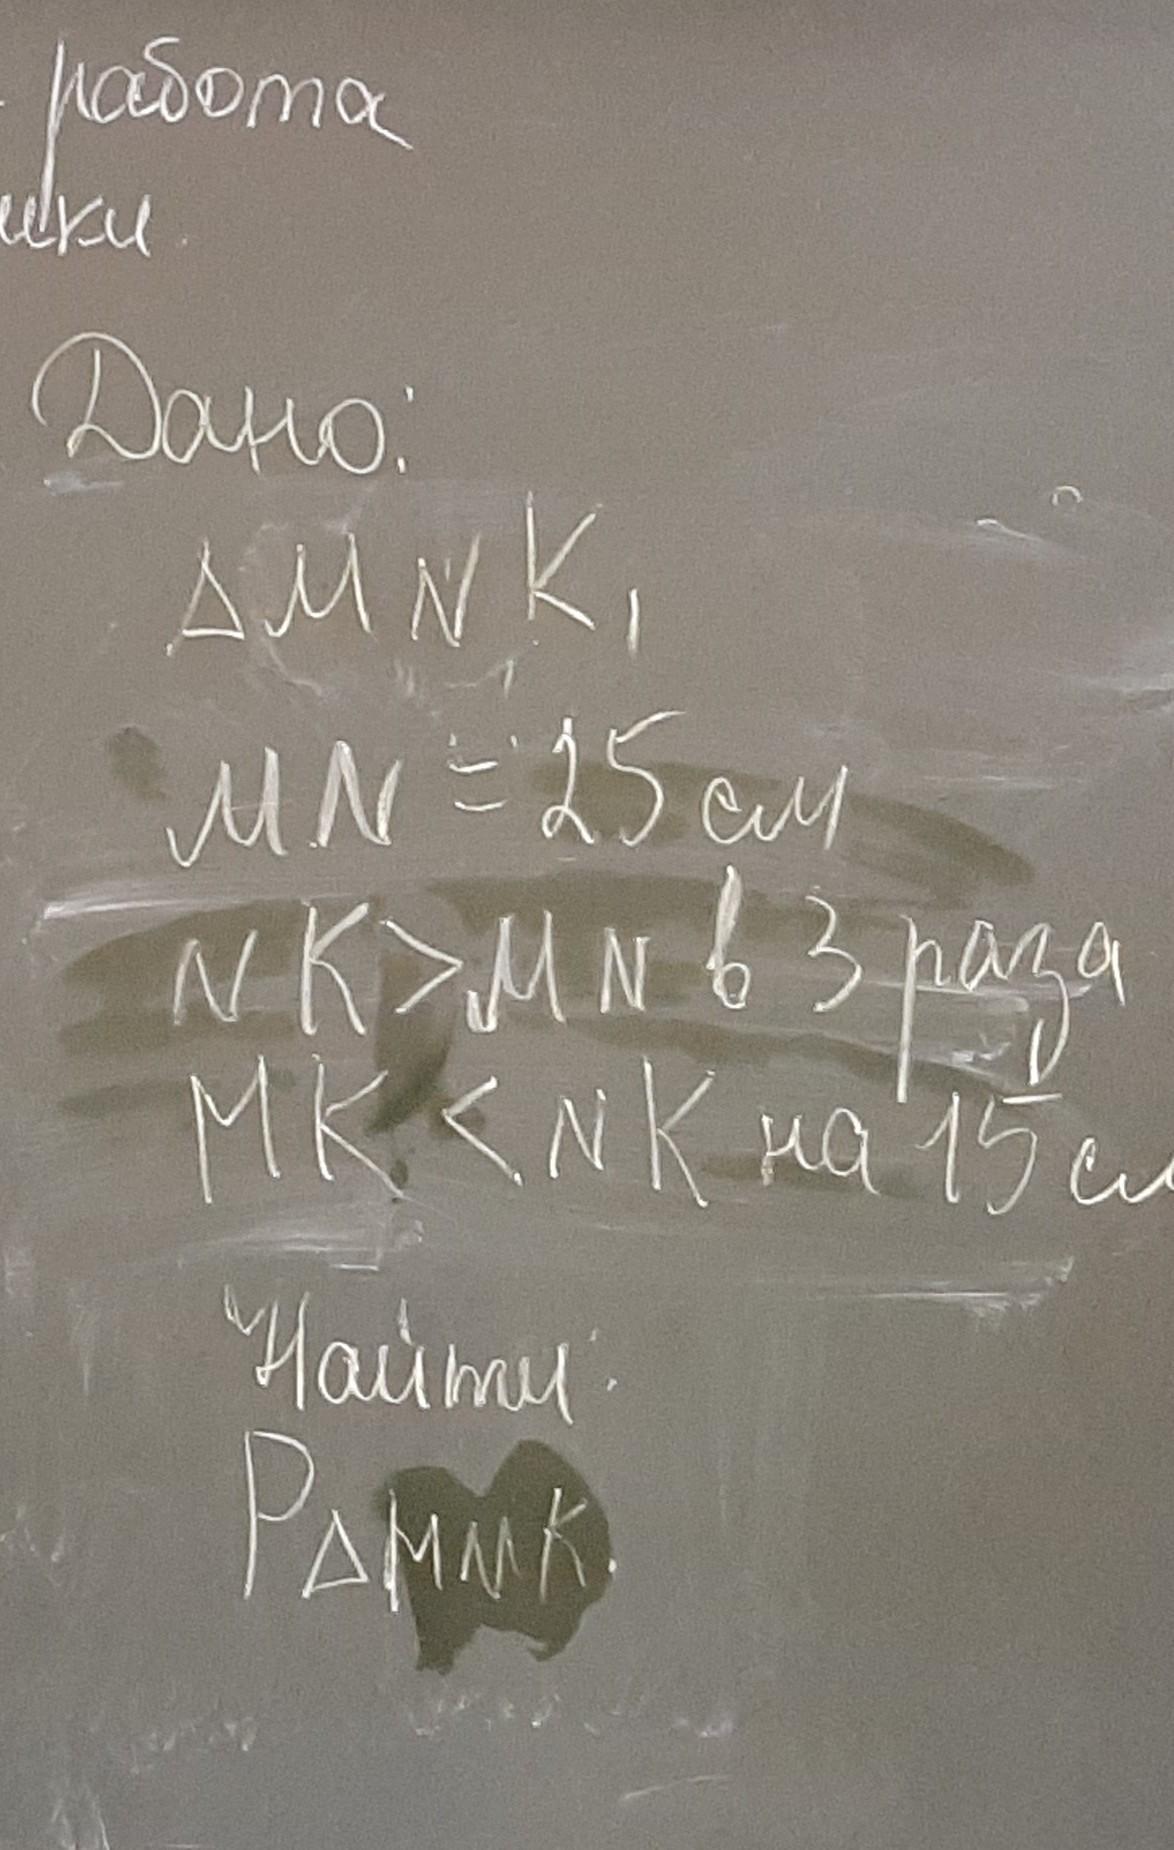 работа
ики
Дано:
△MNK,
MN = 25 см
NK > MN в 3 раза
MK < NK на 15 см
Найти:
P△MNK.